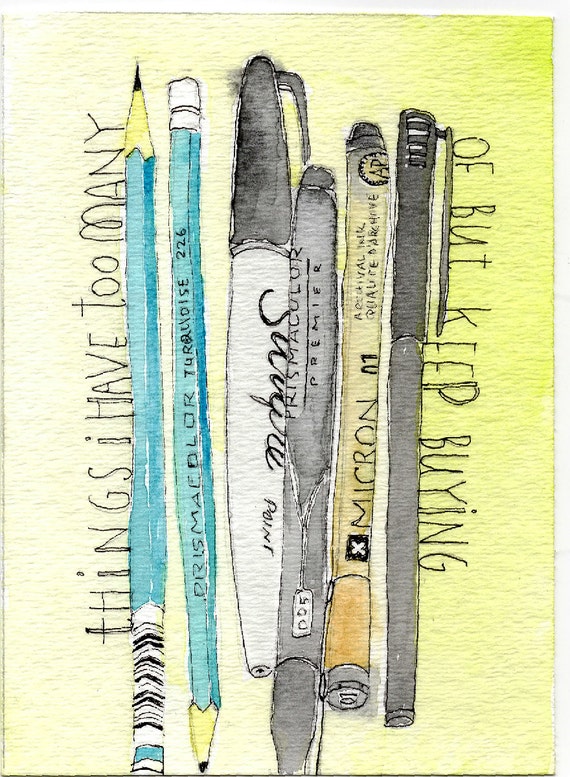 tHiNGS i HAVE tOO MANY
PRISMACOLOR TURQUOISE 226
Sharpie
PAINT
PRISMACOLOR
PREMIER
005
ARCHIVAL INK
QUALITE D'ARCHIVE
AP
MICRON 01
01
OF BUT KEEP BUYING